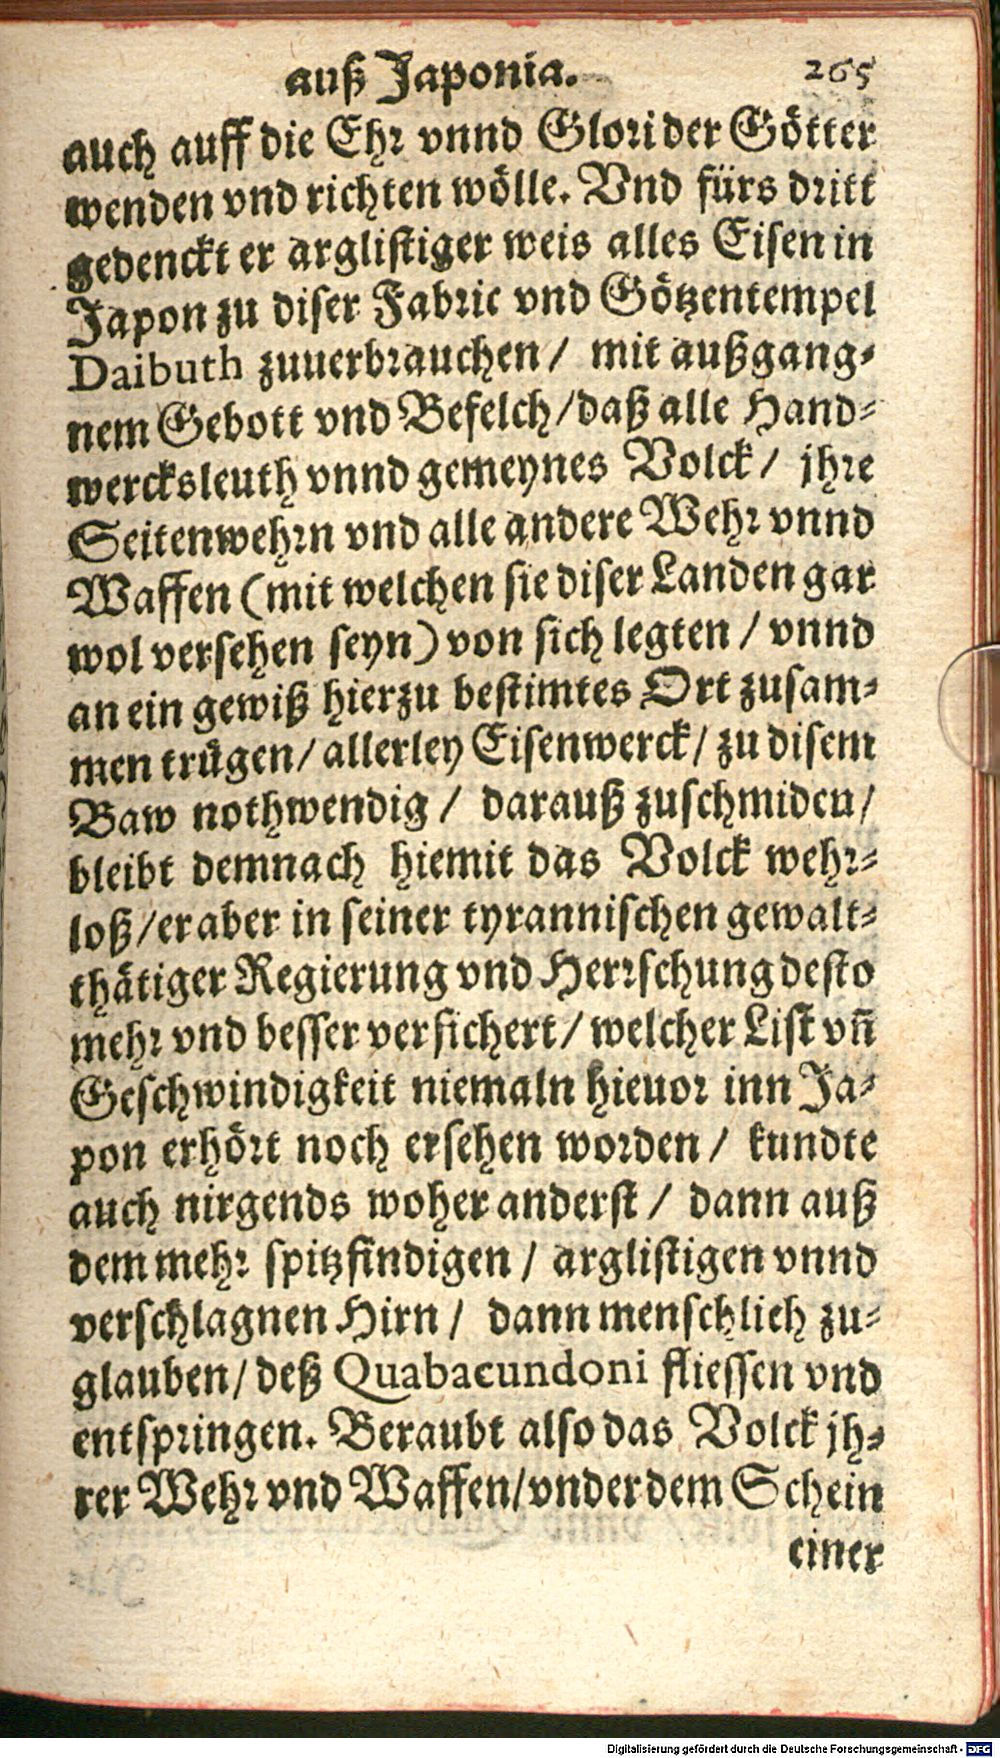 auß Japonia. 265
auch auff die Ehr vnnd Glori der Götter
wenden vnd richten wölle. Vnd fürs dritt
gedenckt er arglistiger weis alles Eisen in
Japon zu diser Fabric vnd Götzentempel
Daibuth zuuerbrauchen / mit außgang-
nem Gebott vnd Befelch / daß alle Hand-
wercksleuth vnnd gemeynes Volck / jhre
Seitenwehrn vnd alle andere Wehr vnnd
Waffen (mit welchen sie diser Landen gar
wol versehen seyn) von sich legten / vnnd
an ein gewiß hierzu bestimtes Ort zusam-
men trügen / allerley Eisenwerck / zu disem
Baw nothwendig / darauß zuschmiden /
bleibt demnach hiemit das Volck wehr-
loß / er aber in seiner tyrannischen gewalt-
thätiger Regierung vnd Herrschung desto
mehr vnd besser versichert / welcher List vñ
Geschwindigkeit niemaln hieuor inn Ja-
pon erhört noch ersehen worden / kundte
auch nirgends woher anderst / dann auß
dem mehr spitzfindigen / arglistigen vnnd
verschlagnen Hirn / dann menschlich zu-
glauben / deß Quabacundoni fliessen vnd
entspringen. Beraubt also das Volck jh-
rer Wehr vnd Waffen / vnder dem Schein
einer
Digitalisierung gefördert durch die Deutsche Forschungsgemeinschaft - DFG